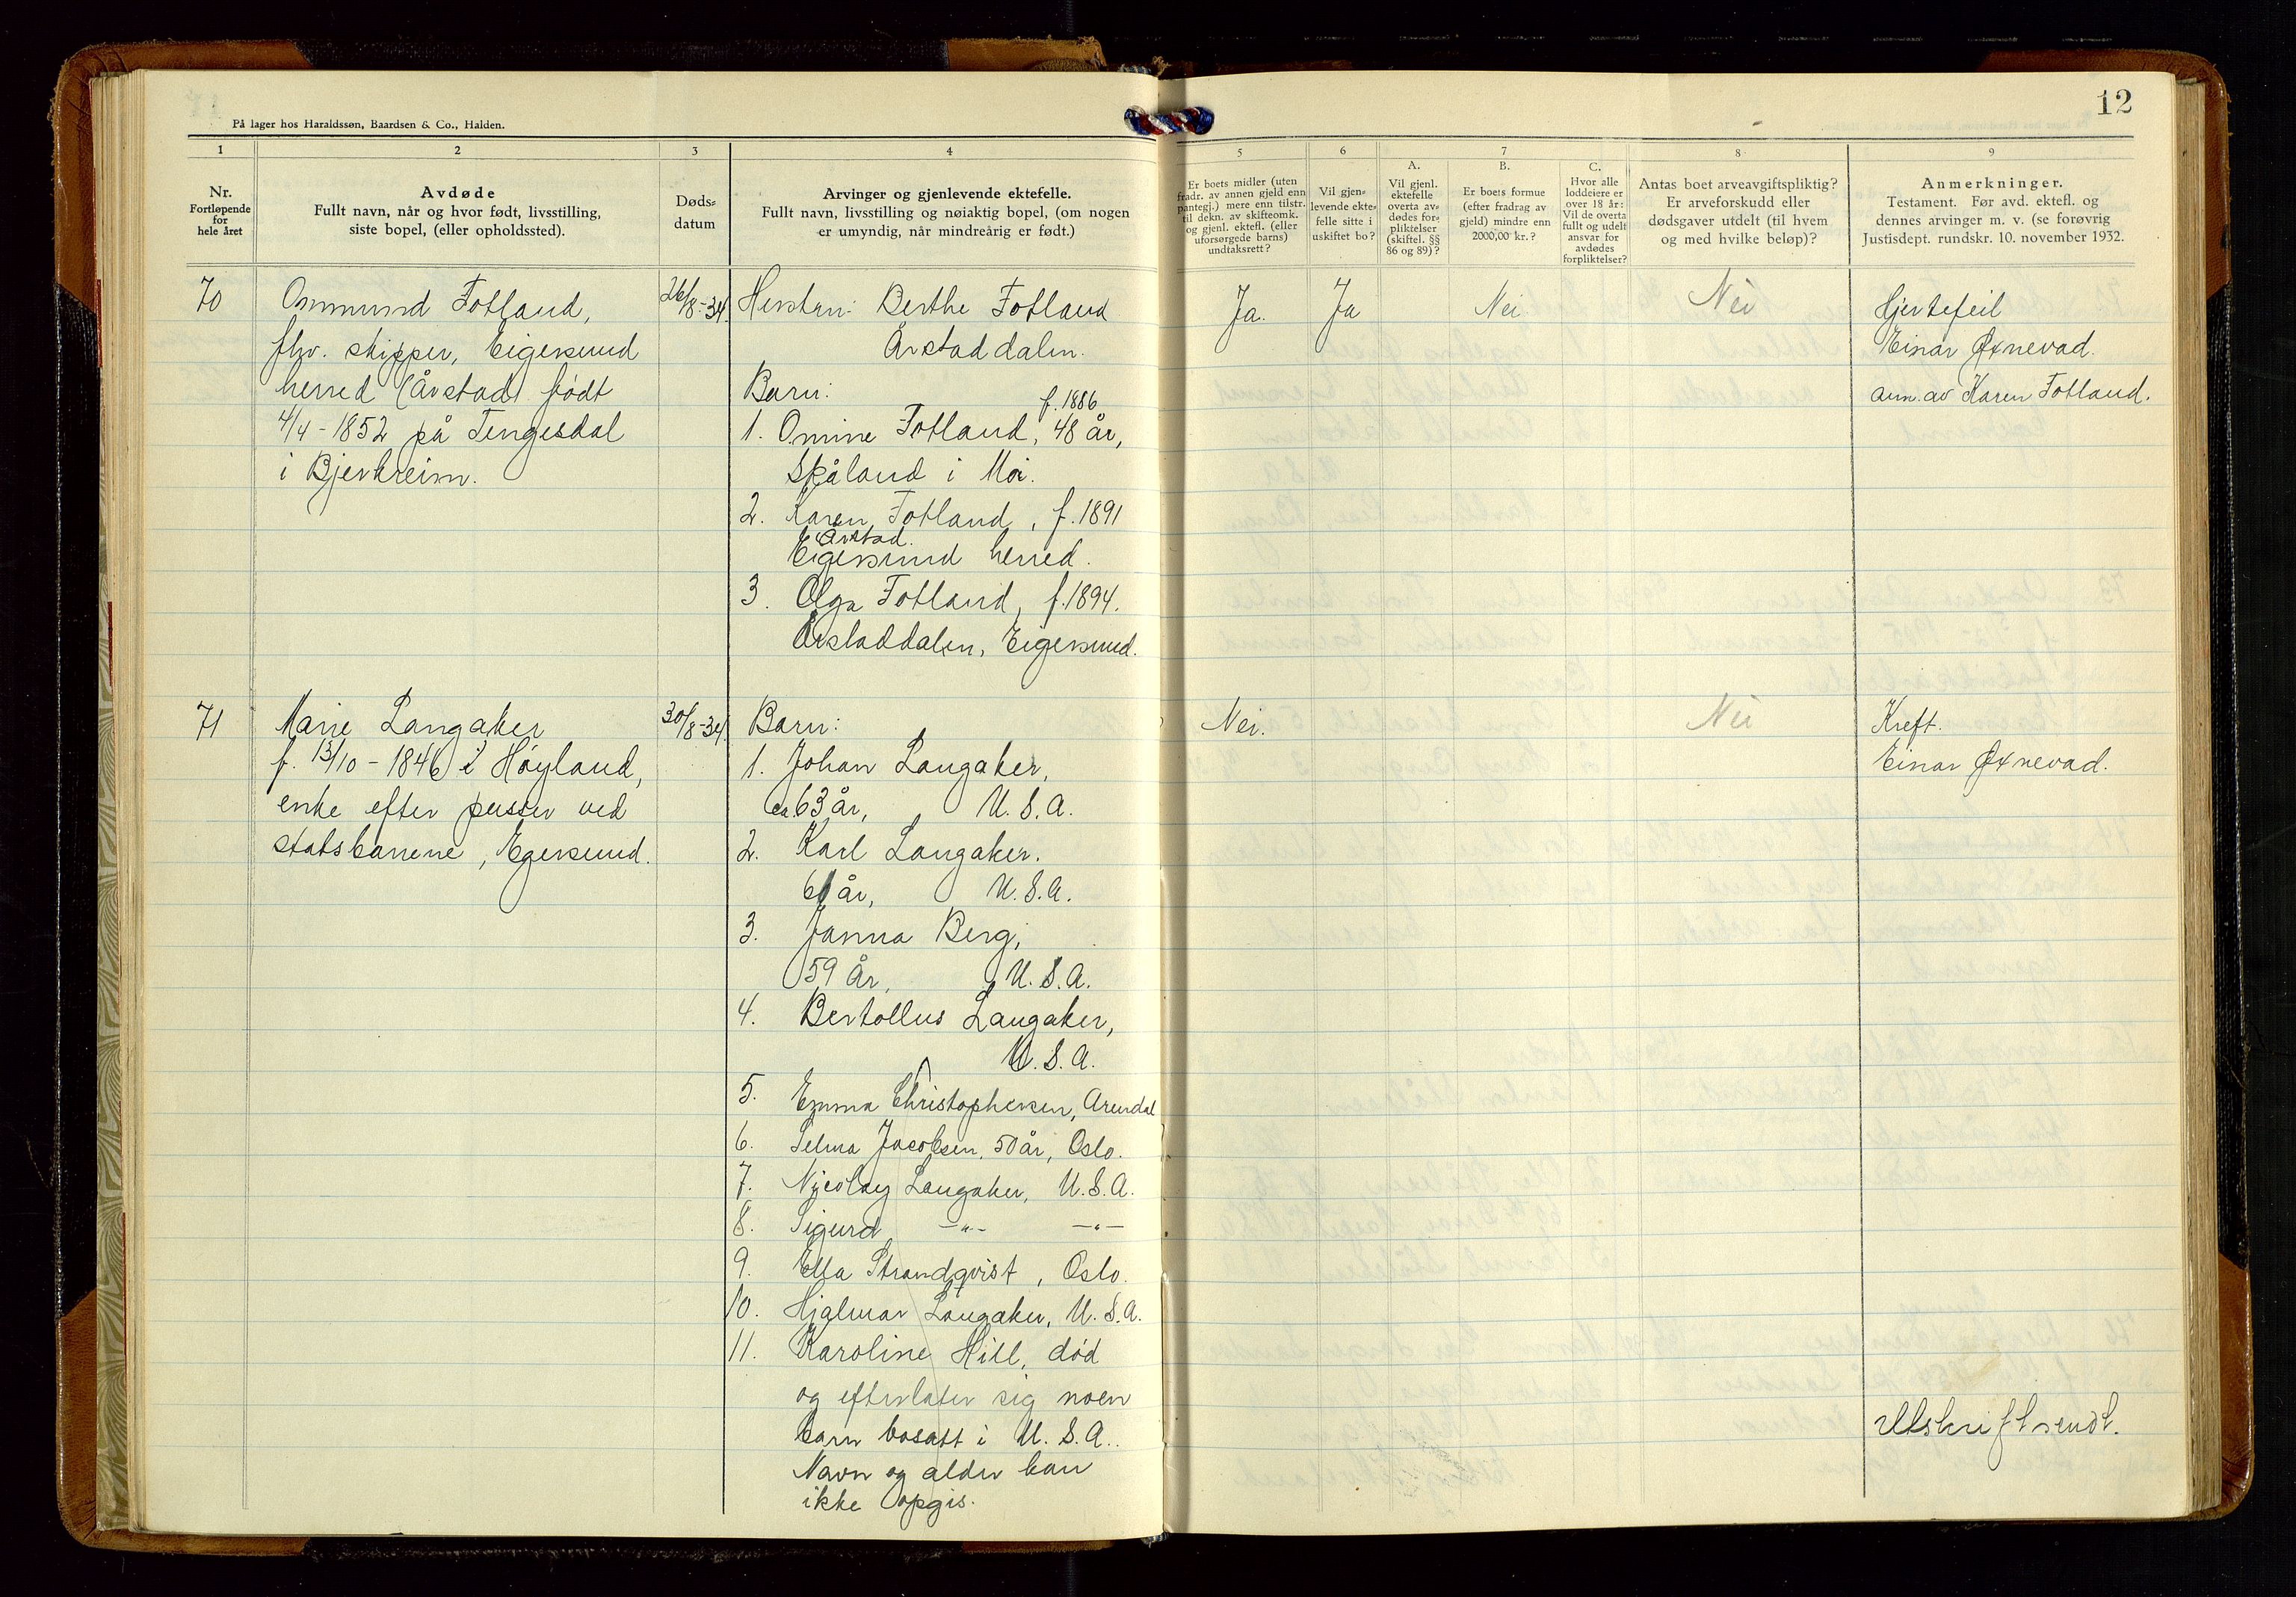 12
På lager hos Haraldssøn, Baardsen & Co., Halden.
1
2
3
4
5
6
7
8
9
Nr.
Fortløpende
for
hele året
Avdøde
Fullt navn, når og hvor født, livsstilling,
siste bopel, (eller opholdssted).
Døds-
datum
Arvinger og gjenlevende ektefelle.
Fullt navn, livsstilling og nøiaktig bopel, (om nogen
er umyndig, når mindreårig er født.)
Er boets midler (uten
fradr. av annen gjeld enn
pantegj.) mere enn tilstr.
til dekn. av skifteomk.
og gjenl. ektefl. (eller
uforsørgede barns)
undtaksrett?
Vil gjen-
levende ekte-
felle sitte i
uskiftet bo?
A.
Vil gjenl.
ektefelle
overta av-
dødes for-
pliktelser
(skiftel. §§
86 og 89)?
B.
Er boets formue
(efter fradrag av
gjeld) mindre enn
2000,00 kr.?
C.
Hvor alle
loddeiere er
over 18 år:
Vil de overta
fullt og udelt
ansvar for
avdødes
forpliktelser?
Antas boet arveavgiftspliktig?
Er arveforskudd eller
dødsgaver utdelt (til hvem
og med hvilke beløp)?
Anmerkninger.
Testament. Før avd. ektefl. og
dennes arvinger m. v. (se forøvrig
Justisdept. rundskr. 10. november 1932.
70
Ommund Fotland,
fhv. skipper, Eigersund
herred (Årstad) født
4/4 - 1852 på Tengesdal
i Bjerkreim.
26/8-34.
Hustru: Berthe Fotland
Årstaddalen.
Barn:
f. 1886
1. Omine Fotland, 48 år,
Skåland i Moi.
2. Karen Fotland, f. 1891
Årstad.
Eigersund herred.
3. Olga Fotland, f. 1894.
Årstaddalen, Eigersund.
Ja.
Ja
Nei
Nei
Hjertefeil
Einar Øxnevad.
anm. av Karen Fotland.
71
Marie Langaker
f. 13/10 - 1846 i Høyland,
enke efter pusser ved
statsbanene, Egersund.
30/8-34.
Barn:
1. Johan Langaker,
ca. 63 år, U.S.A.
2. Karl Langaker.
61 år, U.S.A.
3. Janna Berg,
59 år, U.S.A.
4. Bertollus Langaker,
U.S.A.
5. Emma Christophersen, Arendal
6. Selma Jacobsen, 50 år, Oslo.
7. Nycolay Langaker, U.S.A.
8. Sigurd —"— —"—
9. Ella Strandqvist, Oslo.
10. Hjalmar Langaker, U.S.A.
11. Karoline Hill, død
og efterlater sig noen
barn bosatt i U.S.A..
Navn og alder kan
ikke opgis.
Nei.
Nei
Kreft.
Einar Øxnevad.
Utskrift sendt.